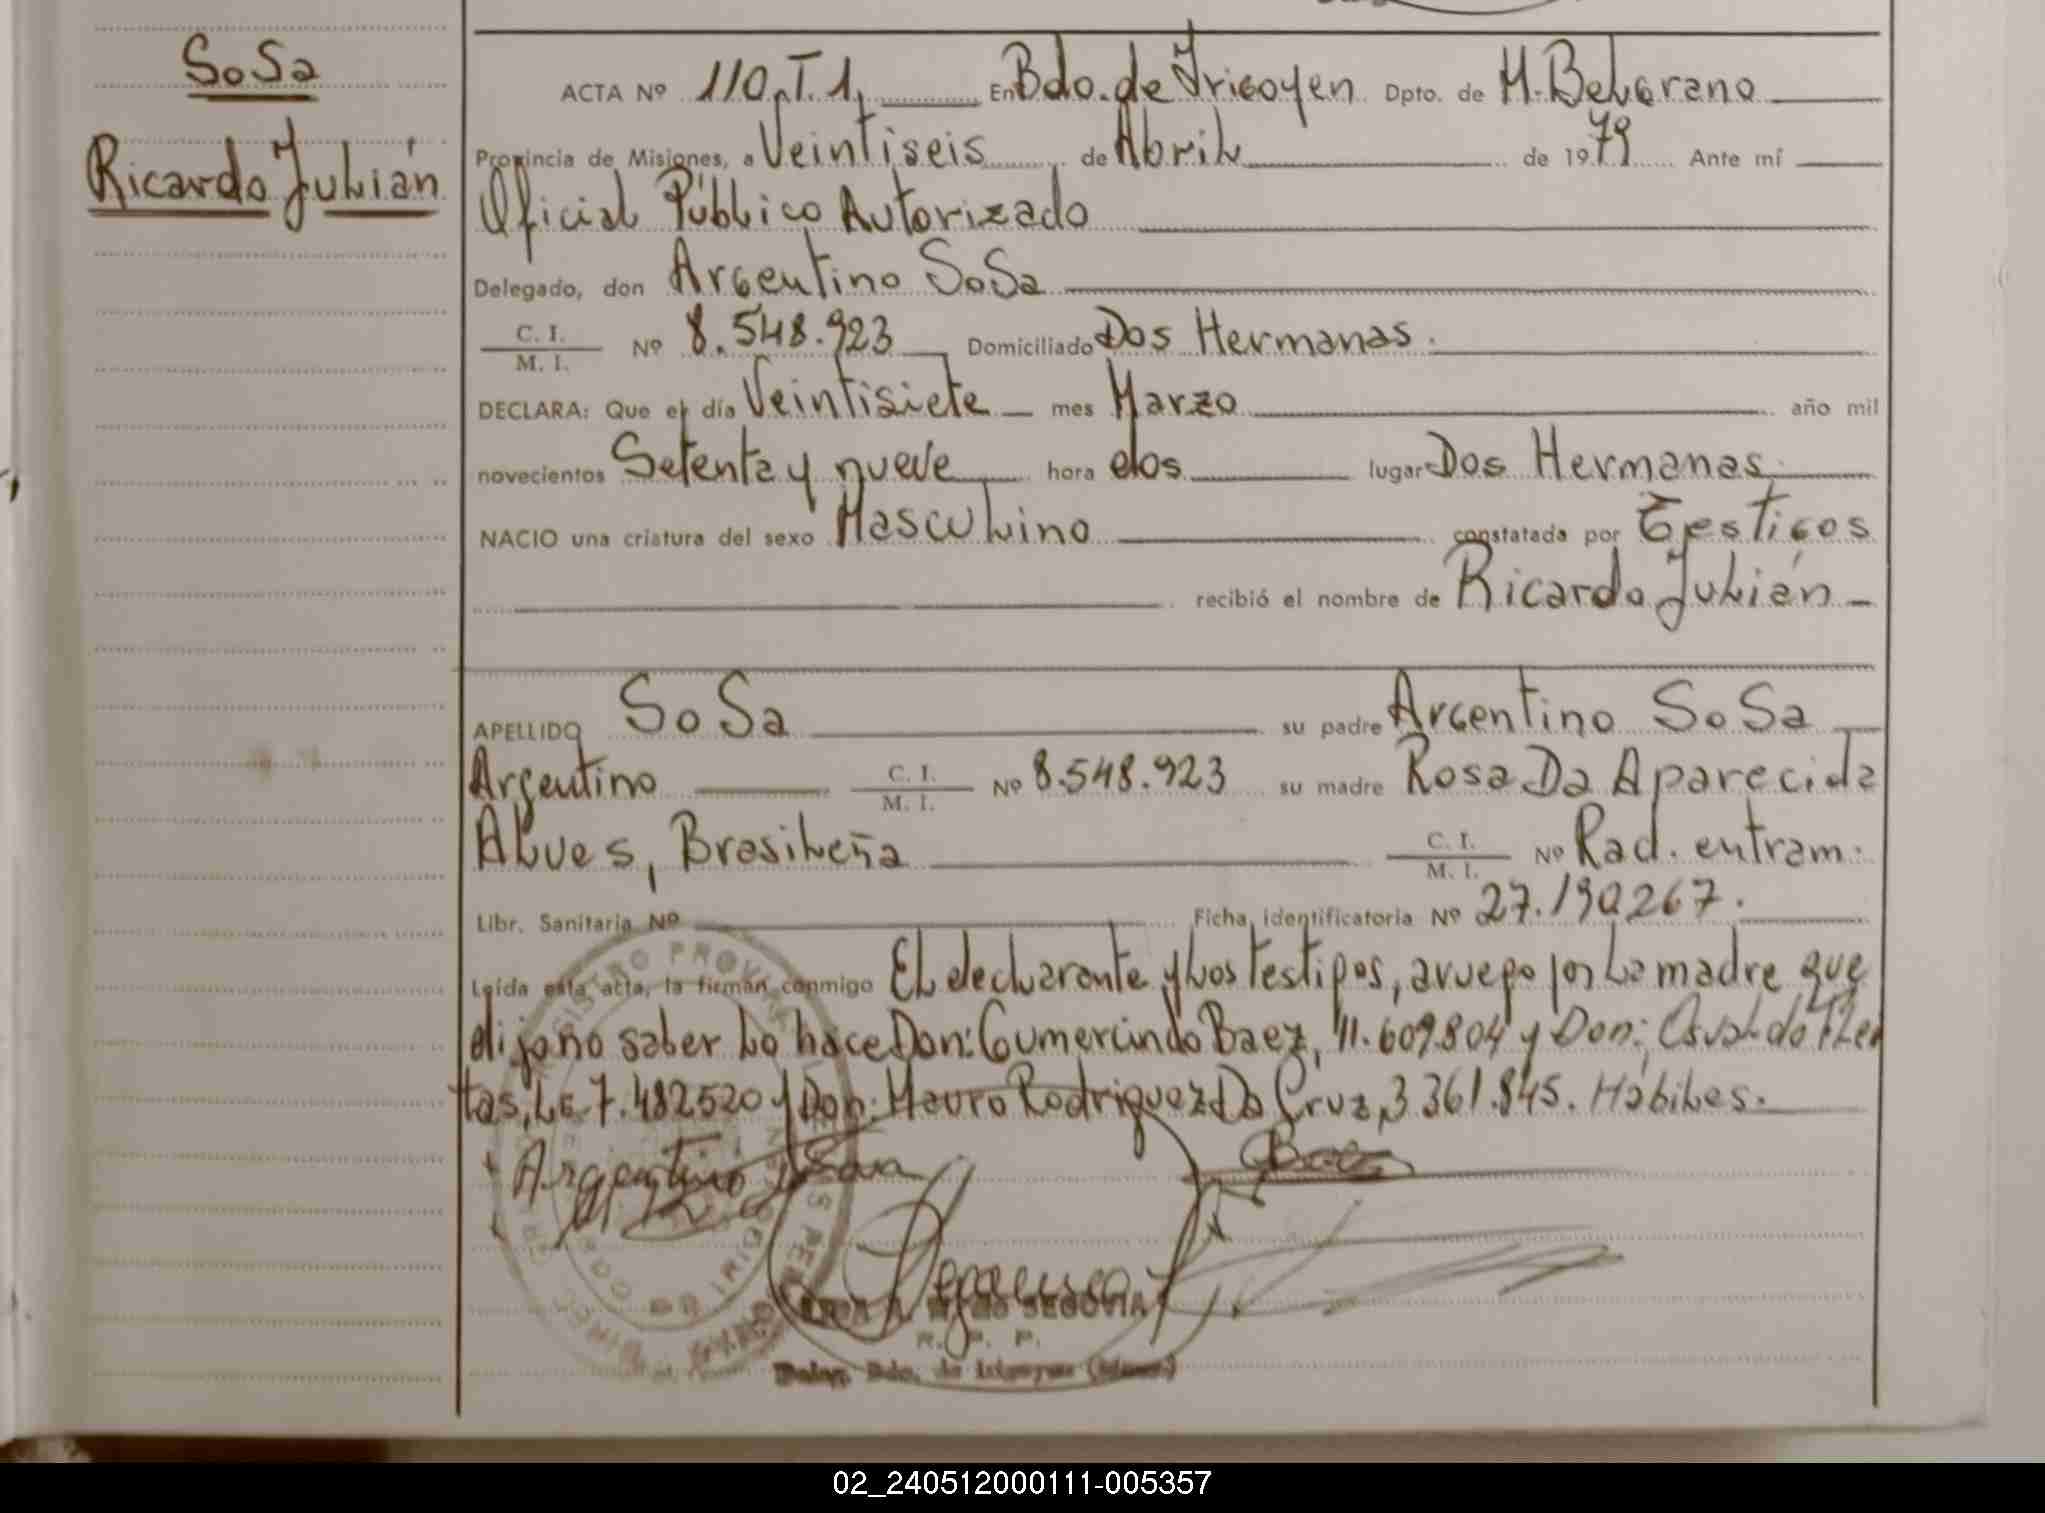 SoSa
Ricardo Julián
ACTA Nº 110.T.1, En Bdo. de Irigoyen Dpto. de M. Belgrano
Provincia de Misiones, a Veintiseis de Abril de 1979 Ante mí
Oficial Público Autorizado
Delegado, don Argentino SoSa
C. I.
M. I.
Nº 8.548.923 Domiciliado Dos Hermanas.
DECLARA: Que el día Veintisiete mes Marzo año mil
novecientos Setenta y nueve hora dos lugar Dos Hermanas.
NACIO una criatura del sexo Masculino constatada por Testigos
recibió el nombre de Ricardo Julián
APELLIDO SoSa su padre Argentino SoSa
Argentino C. I.
M. I.
Nº 8.548.923 su madre Rosa Da Aparecida
Alves, Brasileña C. I.
M. I.
Nº Rad. entram.
Libr. Sanitaria Nº Ficha identificatoria Nº 27.190267.
Leída esta acta, la firman conmigo El declarante y los testigos, a ruego por la madre que
dijo no saber lo hace Don: Gumercindo Baez, 11.609.804 y Don: Osvaldo
tas, LE 7.482520 y Don: Mauro Rodriguez Da Cruz, 3.361.845. Hábiles.
Argentino Sosa
Baez
SEGOVIA
R. P. P.
Deleg. Bdo. de Irigoyen (Mnes.)
02_240512000111-005357